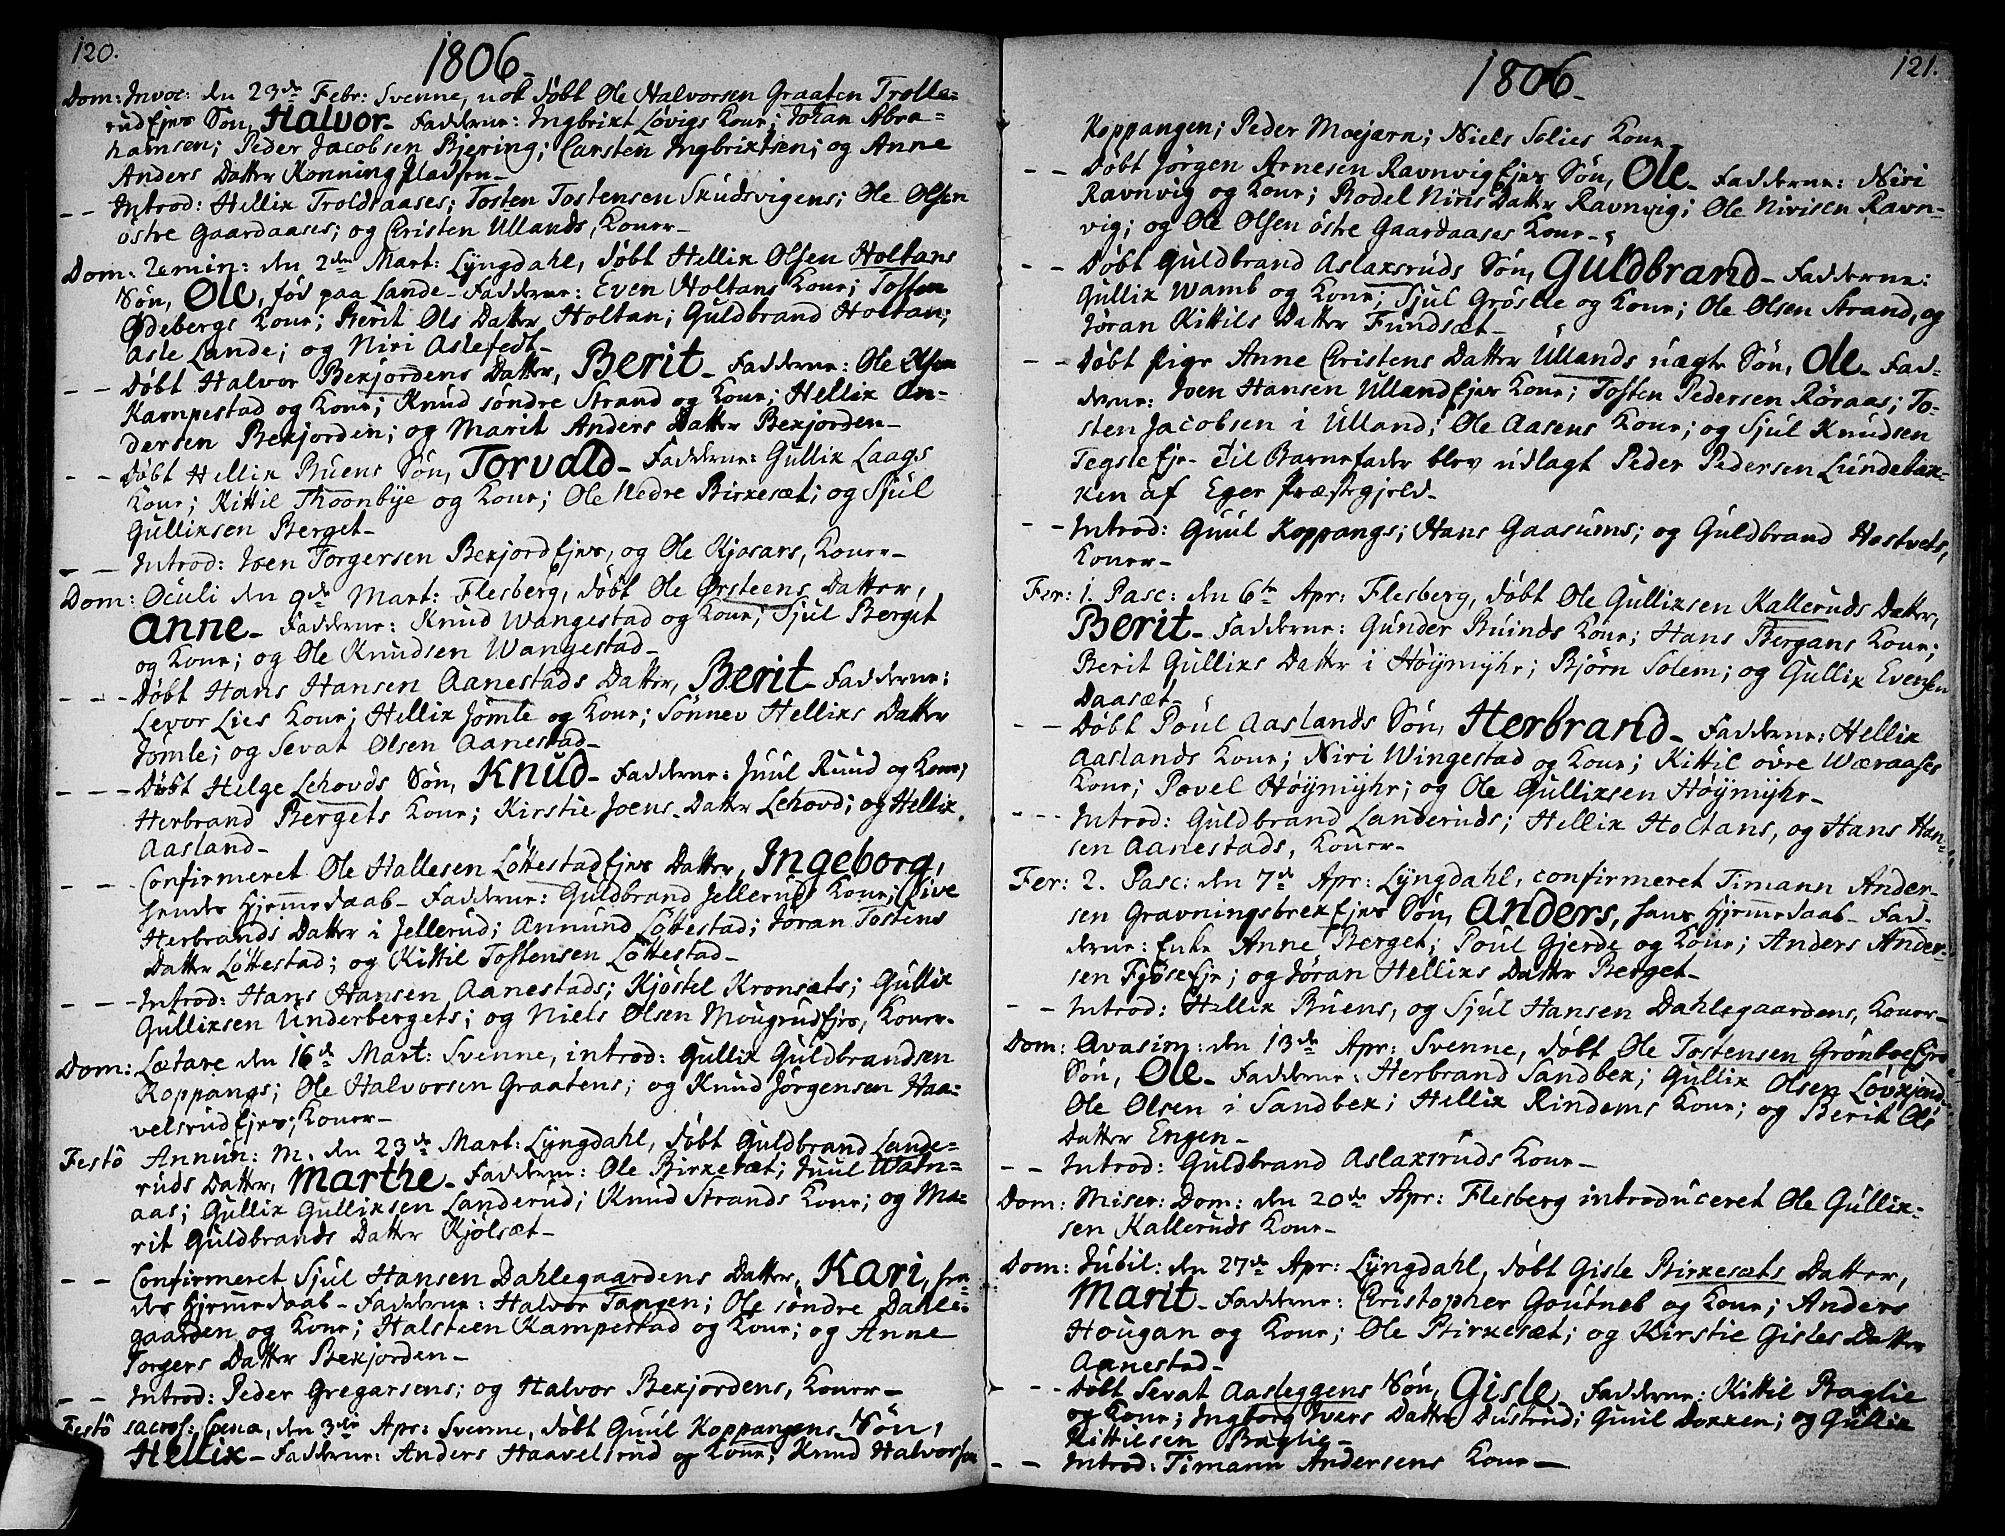 120.
1806.
Dom: Invoc: den 23de Febr: Svenne, døbt Ole Halvorsen Graaten Trolle-
rudEjes Søn, Halvor_ Fadderne: Ingbrixt Løvigs Kone; Johan Abra-
hamsen; Peder Jacobsen Bjering; Carsten Ingbrixtsen; og Anne
Anders Datter Konning Pladsen_
_ _ Introd: Hellix Troldaases; Tosten Tostensen Skudsvigens; Ole Olsen
østre Gaardaases; og Cristen Ullands, Koner_
Dom: Remin: den 2den Mart: Lyngdahl, døbt Hellix Olsen Holtans
Søn, Ole, fød paa Lande_ Fadderne: Even Holtans Kone; Tosten
Ødebergs Kone; Berit Ols Datter Holtan; Guldbrand Holtan;
Asle Lande; og Niri Aslefedt_
_ _ Døbt Halvor Bexjordens Datter, Berit_ Fadderne: Ole Olsen
Kampestad og Kone; Knud søndre Strand og Kone; Hellix An-
dersen Bexjorden; og Marit Anders Datter Bexjorden_
_ _ Døbt Hellix Buens Søn, Torvald_ Fadderne: Gullix Laags
Kone; Kittil Thoonbye og Kone; Ole Nedre Birkesæt; og Sjul
Gullixsen Berget_
_ _ Introd: Joen Torgersen BexjordEjes, og Ole Kjosars, Koner_
Dom: Oculi den 9de Mart: Flesberg, døbt Ole Ørsteens Datter,
Anne_ Fadderne: Knud Wangestad og Kone; Sjul Berget
og Kone; og Ole Knudsen Wangestad_
_ _ _ Døbt Hans Hansen Aanestads Datter, Berit_ Fadderne:
Levor Lies Kone; Hellix Jømle og Kone; Sønnev Hellixs Datter
Jømle; og Sevat Olsen Aanestad_
_ _ _ Døbt Helge Lehovds Søn, Knud_ Fadderne: Juul Ruud og Kone;
Herbrand Bergets Kone; Kirstie Joens Datter Lehovd; og Hellix
Aasland_
_ _ Confirmeret Ole Hallesen LøttestadEjes Datter, Ingeborg,
hendes Hjemmedaab_ Fadderne: Guldbrand Jellerud Kone; Live
Herbrands Datter i Jellerud; Anmund Løttestad; Jøran Tostens
Datter Løttestad; og Kittil Tostensen Løttestad_
_ _ _ Introd: Hans Hansen Aanestads; Kjøstel Kronsæts; Gullix
Gullixsen Underbergets; og Niels Olsen MougrudEjes, Koner_
Dom: Lætare den 16de Mart: Svenne, introd: Gullix Guldbrandsen
Koppangs; Ole Halvorsen Graatens; og Knud Jørgensen Haa-
velsrudEjes; Koner_
Festo Annun: M. den 23de Mart: Lyngdahl, døbt Guldbrand Lande-
ruds Datter, Marthe_ Fadderne: Ole Birkesæt; Juul Watn-
aas; Gullix Gullixsen Landerud; Knud Strands Kone; og Ma-
rit Guldbrands Datter Kjølsæt_
_ _ Confirmeret Sjul Hansen Dahlegaardens Datter, Kari, hen-
des Hjemmedaab_ Fadderne: Halvor Tangen; Ole søndre Dahle-
gaarden og Kone; Halsteen Kampestad og Kone; og Anne
Torgers Datter Bexjorden_
_ _ Introd: Peder Gregarsens; og Halvor Bexjordens, Koner_
Festo sacros: Coena, den 3die Apr: Svenne, døbt Guul Koppangens Søn,
Hellix_ Fadderne: Anders Haavelsrud og Kone; Knud Halvorsen
1806.
121.
Koppangen; Peder Moejarn; Niels Solies Kone_
_ _ Døbt Jørgen Arnesen RavnvigEjes Søn, Ole_ Fadderne: Niri
Ravnvig og Kone; Bodel Niris Datter Ravnvig; Ole Nirisen Ravn-
vig; og Ole Olsen østre Gaardaases Kone_
_ _ Døbt Guldbrand Aslaxsruds Søn, Guldbrand_ Fadderne:
Gullix Wamb og Kone; Sjul Grøslie og Kone; Ole Olsen Strand, og
Jøran Kittils Datter Fundsæt_
_ _ Døbt Pige Anne Cristens Datter Ullands uægte Søn, Ole_ Fad-
derne: Joen Hansen UllandEjes Kone; Tosten Pedersen Røraas; To-
sten Jacobsen i Ulland; Ole Aasens Kone; og Sjul Knudsen
TegsleEje_ Til Barnefader blev udlagt Peder Pedersen Lundebax-
ken af Eger Præstegjeld_
_ _ Introd: Guul Koppangs; Hans Gaasums; og Guldbrand Hostvets,
Koner_
Fer: 1. Pasc: den 6te Apr: Flesberg, døbt Ole Gullixsen Kalleruds Datter,
Berit_ Fadderne: Gunder Buinds Kone; Hans Bergans Kone;
Berit Gullixs Datter i Høymyhr; Bjørn Solem; og Gullix Evensen
Daasæt_
_ _ Døbt Poul Aaslands Søn, Herbrand_ Fadderne: Hellix
Aaslands Kone; Niri Wingestad og Kone; Kittil øvre Wæraases
Kone; Povel Høymyhr; og Ole Gullixsen Høymyhr_
_ _ _ Introd: Guldbrand Landeruds; Hellix Holtans, og Hans Han-
sen Aanestads, Koner_
Fer: 2. Pasc: den 7de Apr: Lyngdahl, confirmeret Timann Ander-
sen GravningsbrexEjes Søn, Anders, hans Hjemmedaab_ Fad-
derne: Enke Anne Berget; Poul Gjerde og Kone; Anders Ander-
sen FjøseEje; og Jøran Hellixs Datter Berget_
_ _ Introd: Hellix Buens, og Sjul Hansen Dahlegaardens, Koner_
Dom: Qvasim: den 13de Apr: Svenne, døbt Ole Tostensen GrønboeEjes
Søn, Ole_ Fadderne: Herbrand Sandbek; Gullix Olsen Løvxjend
Ole Olsen i Sandbek; Hellix Rindems Kone; og Berit Ols
Datter Engen_
_ _ Introd: Guldbrand Aslaxsruds Kone_
Dom: Miser: Dom: den 20de Apr: Flesberg introduceret Ole Gullix-
sen Kalleruds Kone_
Dom: Jubil: den 27de Apr: Lyngdahl, døbt Gisle Birkesæts Datter,
Marit_ Fadderne: Christopher Goutneb og Kone; Anders
Hougan og Kone; Ole Birkesæt; og Kirstie Gisles Datter
Aanestad_
_ _ Døbt Sevat Aasleggens Søn, Gisle_ Fadderne: Kittil Baglie
og Kone; Ingborg Ivers Datter Dustrud; Guul Dokken; og Gullix
Kittilsen Baglie_
_ _ Introd: Timann Andersens Kone_